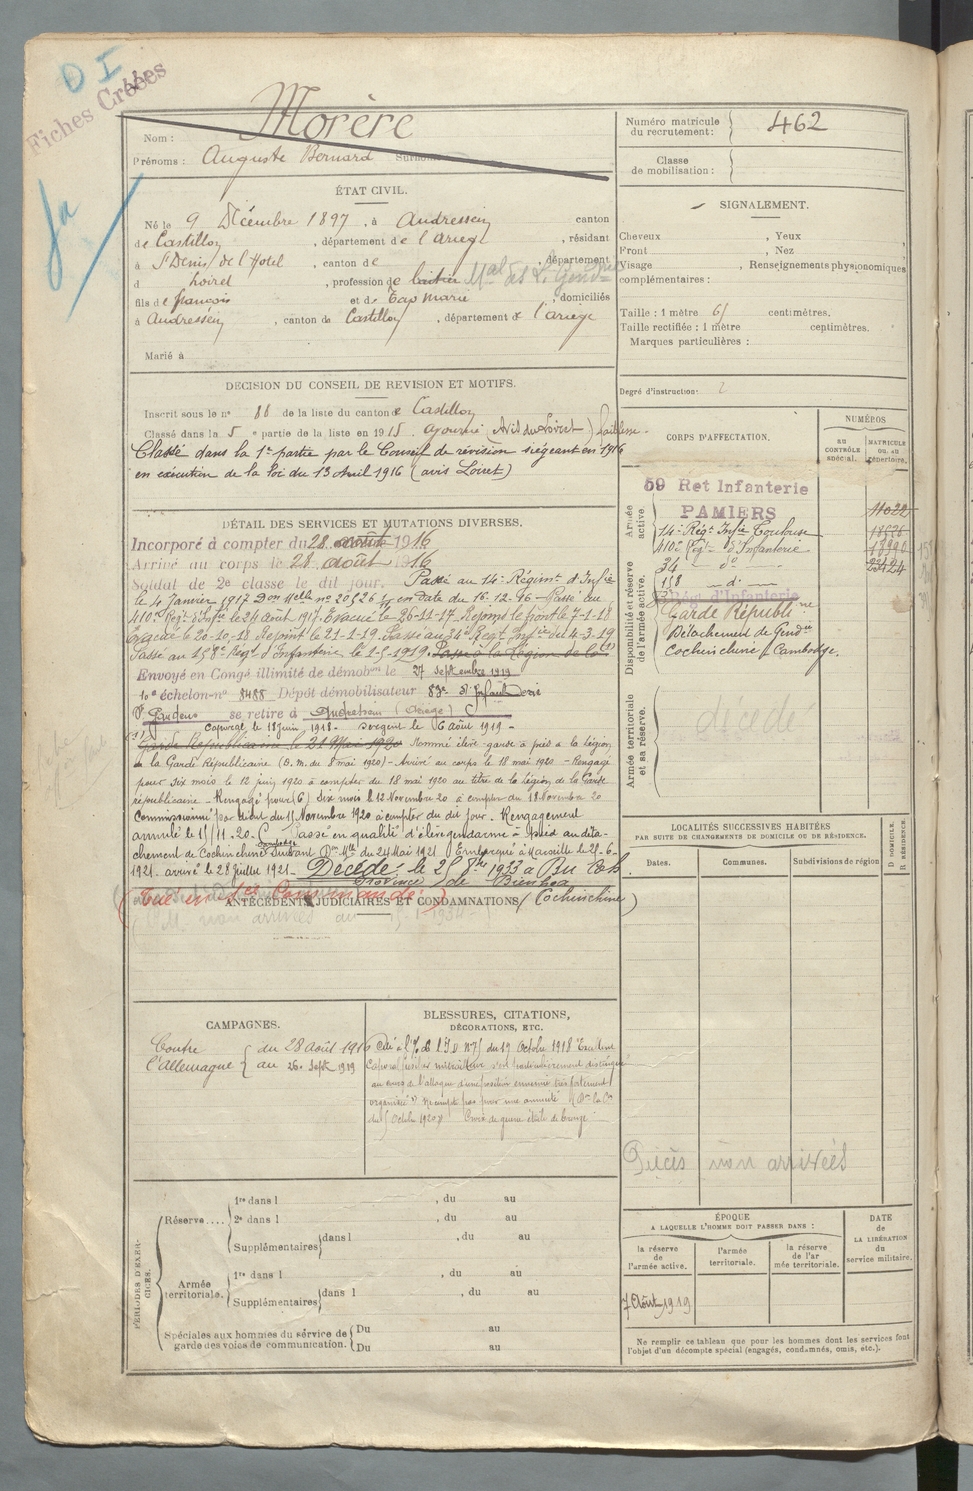 D I
Fiches Créées
Nom : Morère
Prénoms : Auguste Bernard Surnoms
Numéro matricule du recrutement : 462
Classe de mobilisation :
ÉTAT CIVIL.
Né le 9 Décembre 1897, à Audressein canton
de Castillon, département de l'Ariège, résidant
à St Denis de l'Hotel, canton de , département
d Loiret, profession de laitier
fils de françois et de Tap Marie, domiciliés
à Audressein, canton de Castillon, département de l'ariège
Marié à
SIGNALEMENT.
Cheveux , Yeux ,
Front , Nez ,
Visage , Renseignements physionomiques
complémentaires :
Taille : 1 mètre 61 centimètres.
Taille rectifiée : 1 mètre centimètres.
Marques particulières :
Degré d'instruction : 2
DECISION DU CONSEIL DE REVISION ET MOTIFS.
Inscrit sous le n° 88 de la liste du canton de Castillon
Classé dans la 5e partie de la liste en 1915. ajourné (Avis du Loiret) faiblesse.
Classé dans la 1e partie par le Conseil de révision siégeant en 1916
en exécution de la loi du 13 Avril 1916 (avis Loiret)
DÉTAIL DES SERVICES ET MUTATIONS DIVERSES.
Incorporé à compter du 28 août 1916
Arrivé au corps le 28 août 1916
Soldat de 2e classe le dit jour. Passé au 14e Régimt d'Infie
le 4 Janvier 1917 Don Mlle no 20526 en date du 16-12-96 - Passé au
410e Regt d'Infie le 24 août 1917. Evacué le 26-11-17. Rejoint le front le 7-1-18
Evacué le 20-10-18 Rejoint le 21-1-19. Passé au 34e Regt Infie del 4-3-19
Passé au 158e Regt d'Infanterie le 2-5-1919. Passé à la Légion de la
Envoyé en Congé illimité de démobon le 27 septembre 1919
10e échelon no 8488 Dépôt démobilisateur 83e d'Infanterie
St Gaudens se retire à Audressein (Ariège)
Caporal le 18 juin 1918 - sergent le 16 août 1919 -
Garde Républicaine le 21 Mai 1920 Nommé élève-garde à pied à la légion
de la Garde Républicaine (D. m. du 8 mai 1920) - Arrivé au corps le 18 mai 1920 - Rengagé
pour six mois le 12 juin 1920 à compter du 18 mai 1920 au titre de la Légion de la Garde
républicaine - Rengagé pour (6) six mois le 12 Novembre 20 à compter du 18 Novembre 20
Commissionné par décret du 15 Novembre 1920 à compter du dit jour. Rengagement
annulé le 15/11.20. Passé en qualité d'élève gendarme à pied au déta-
Cambodge
chement de Cochinchine suivant Don Mlle du 24 Mai 1921. Embarqué à Marseille le 25-6-
1921 - arrivé le 28 Juillet 1921 - Décédé le 25 8bre 1933 à Bu Coh
Province de Bienhoa
(Cochinchine)
Tué
ANTÉCÉDENTS JUDICIAIRES ET CONDAMNATIONS
CAMPAGNES.
Contre l'Allemagne { du 28 Août 1916
au 26 Septe 1919
BLESSURES, CITATIONS, DÉCORATIONS, ETC.
Cité à l'o/ de l'I D no 75 du 19 Octobre 1918 Excellent
Caporal fusilier mitrailleur s'est particulièrement distingué
au cours de l'attaque d'une position ennemie très fortement
organisée" Ne compte pas pour une annuité
du 5 Octobre 1920) Croix de guerre étoile de bronze
CORPS D'AFFECTATION.
NUMÉROS
au CONTRÔLE spécial.
MATRICULE ou au répertoire.
Armée active.
59 Ret Infanterie
PAMIERS 11022
14e Régt Infie Toulouse 18526
410e Regt d'Infanterie
34 do 23424
158 - d° -
Disponibilité et réserve de l'armée active.
Rég. d'Infanterie
Garde Républine
Détachement de Gendie
Cochinchine / Cambodge.
Armée territoriale et sa réserve.
décédé
LOCALITÉS SUCCESSIVES HABITÉES
PAR SUITE DE CHANGEMENTS DE DOMICILE OU DE RÉSIDENCE.
Dates. Communes. Subdivisions de région
D DOMICILE.
R RÉSIDENCE.
Décès non arrivées
PÉRIODES D'EXERCICES.
Réserve.... 1re dans l , du au
2e dans l , du au
Supplémentaires dans l , du au
Armée territoriale. 1re dans l , du au
Supplémentaires dans l , du au
Spéciales aux hommes du service de garde des voies de communication. Du au
Du au
ÉPOQUE
A LAQUELLE L'HOMME DOIT PASSER DANS :
la réserve de l'armée active.
l'armée territoriale.
la réserve de l'ar mée territoriale.
DATE de LA LIBÉRATION du service militaire.
7 Août 1919
Ne remplir ce tableau que pour les hommes dont les services font
l'objet d'un décompte spécial (engagés, condamnés, omis, etc.).